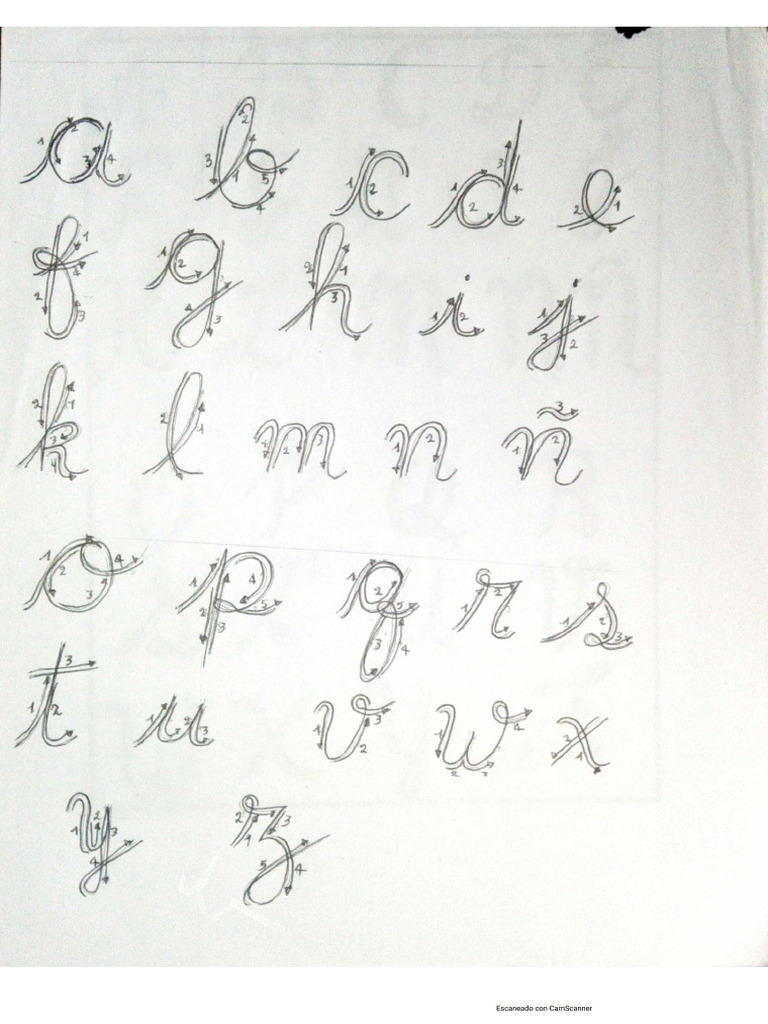 a b c d e
f g h i j
k l m n ñ
o p q r s
t u v w x
y z
Escaneado con CamScanner